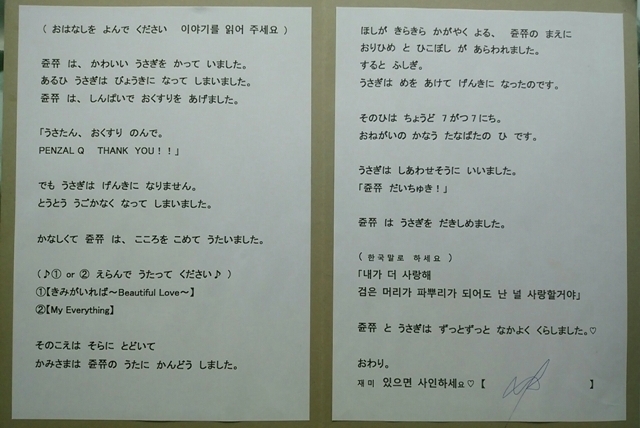 ( おはなしを よんで ください 이야기를 읽어 주세요 )
쥰쮸 は、 かわいい うさぎを かって いました。
あるひ うさぎは びょうきに なって しまいました。
쥰쮸 は、 しんぱいで おくすりを あげました。
「うさたん、 おくすり のんで。
PENZAL Q THANK YOU！！」
でも うさぎは げんきに なりません。
とうとう うごかなく なって しまいました。
かなしくて 쥰쮸 は、 こころを こめて うたいました。
(♪① or ② えらんで うたって ください♪ )
①【きみがいれば～Beautiful Love～】
②【My Everything】
そのこえは そらに とどいて
かみさまは 쥰쮸の うたに かんどう しました。
ほしが きらきら かがやく よる、 쥰쮸の まえに
おりひめ と ひこぼし が あらわれました。
すると ふしぎ。
うさぎは めを あけて げんきに なったのです。
そのひは ちょうど 7がつ7にち。
おねがいの かなう たなばたの ひ です。
うさぎは しあわせそうに いいました。
「쥰쮸 だいちゅき！」
쥰쮸 は うさぎを だきしめました。
( 한국말로 하세요 )
「내가 더 사랑해
검은 머리가 파뿌리가 되어도 난 널 사랑할거야」
쥰쮸 と うさぎは ずっとずっと なかよく くらしました。♡
おわり。
재미 있으면 사인하세요♡【 】